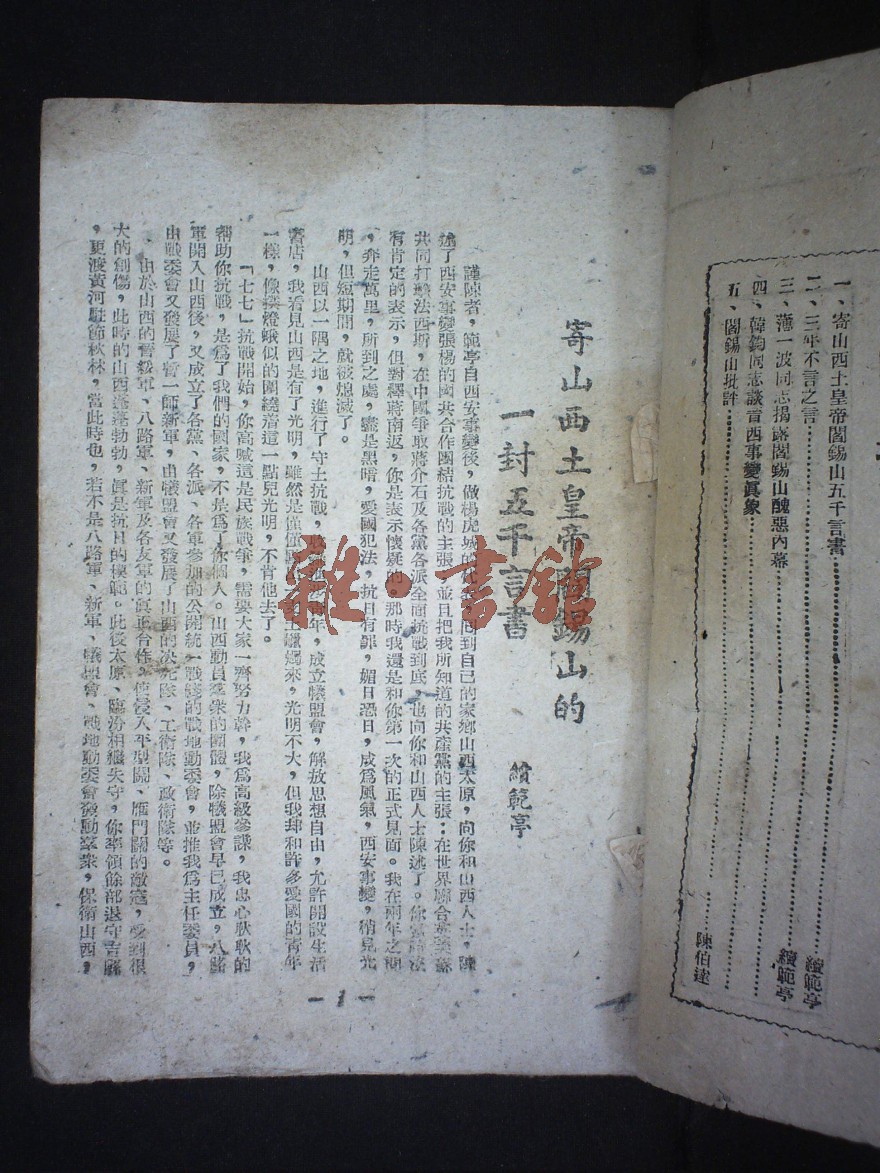 一、寄山西土皇帝閻錫山五千言書……續範亭
二、三年不言之言……續範亭
三、薄一波同志揭露閻錫山醜惡內幕
四、韓鈞同志談晋西事變眞象
五、閻錫山批評……陳伯達
寄山西土皇帝閻錫山的
一封五千言書
續範亭
謹陳者，範亭自西安事變後，做楊虎城的代表回到自己的家鄉山西太原，向你和山西人士，陳
述了西安事變張楊的國共合作團結抗戰的主張，並且把我所知道的共產黨的主張：在世界聯合英美蘇
共同打擊法西斯，在中國爭取蔣介石及各黨各派全面抗戰到底，也向你和山西人士陳述了。你
有肯定的表示，但對釋蔣南返，你是表示懷疑的，那時我還是和你第一次的正式見面。我在兩年之期
，奔走萬里，所到之處，盡是黑暗，愛國犯法，抗日有罪，媚日恐日，成爲風氣，西安事變，稍見光
明，但短期間，就被熄滅了。
山西以一隅之地，進行了守土抗戰，年，成立犧盟會，解放思想自由，允許開設生活
書店，我看見山西是有了光明，雖然是僅僅蠟燭來，光明不大，但我却和許多愛國的青年
一樣，像撲燈蛾似的圍繞着這一點兒光明，不肯他去了。
「七七」抗戰開始，你高喊這是民族戰爭，需要大家一齊努力幹，我爲高級參謀，我忠心耿耿的
幫助你抗戰，是爲了我們的國家，不是爲了你個人。山西動員羣衆的團體，除犧盟會早已成立，八路
軍開入山西後，又成立了各黨、各派、各軍參加的公開統一戰綫的戰地動委會，並推我爲主任委員，
由戰委會又發展了暫一師新軍，由犧盟會又發展了山西的决死隊、工衛隊、政衛隊等。
由於山西的晋綏軍、八路軍、新軍及各友軍的眞正合作，使侵入平型關、雁門關的敵寇，受到很
大的創傷，此時的山西蓬蓬勃勃，眞是抗日的模範。此後太原、臨汾相繼失守，你率領餘部退守吉縣
，更渡黃河駐節秋林，當此時也，若不是八路軍、新軍、犧盟會、戰地動委會發動羣衆，保衛山西，
—1—
雅·書館